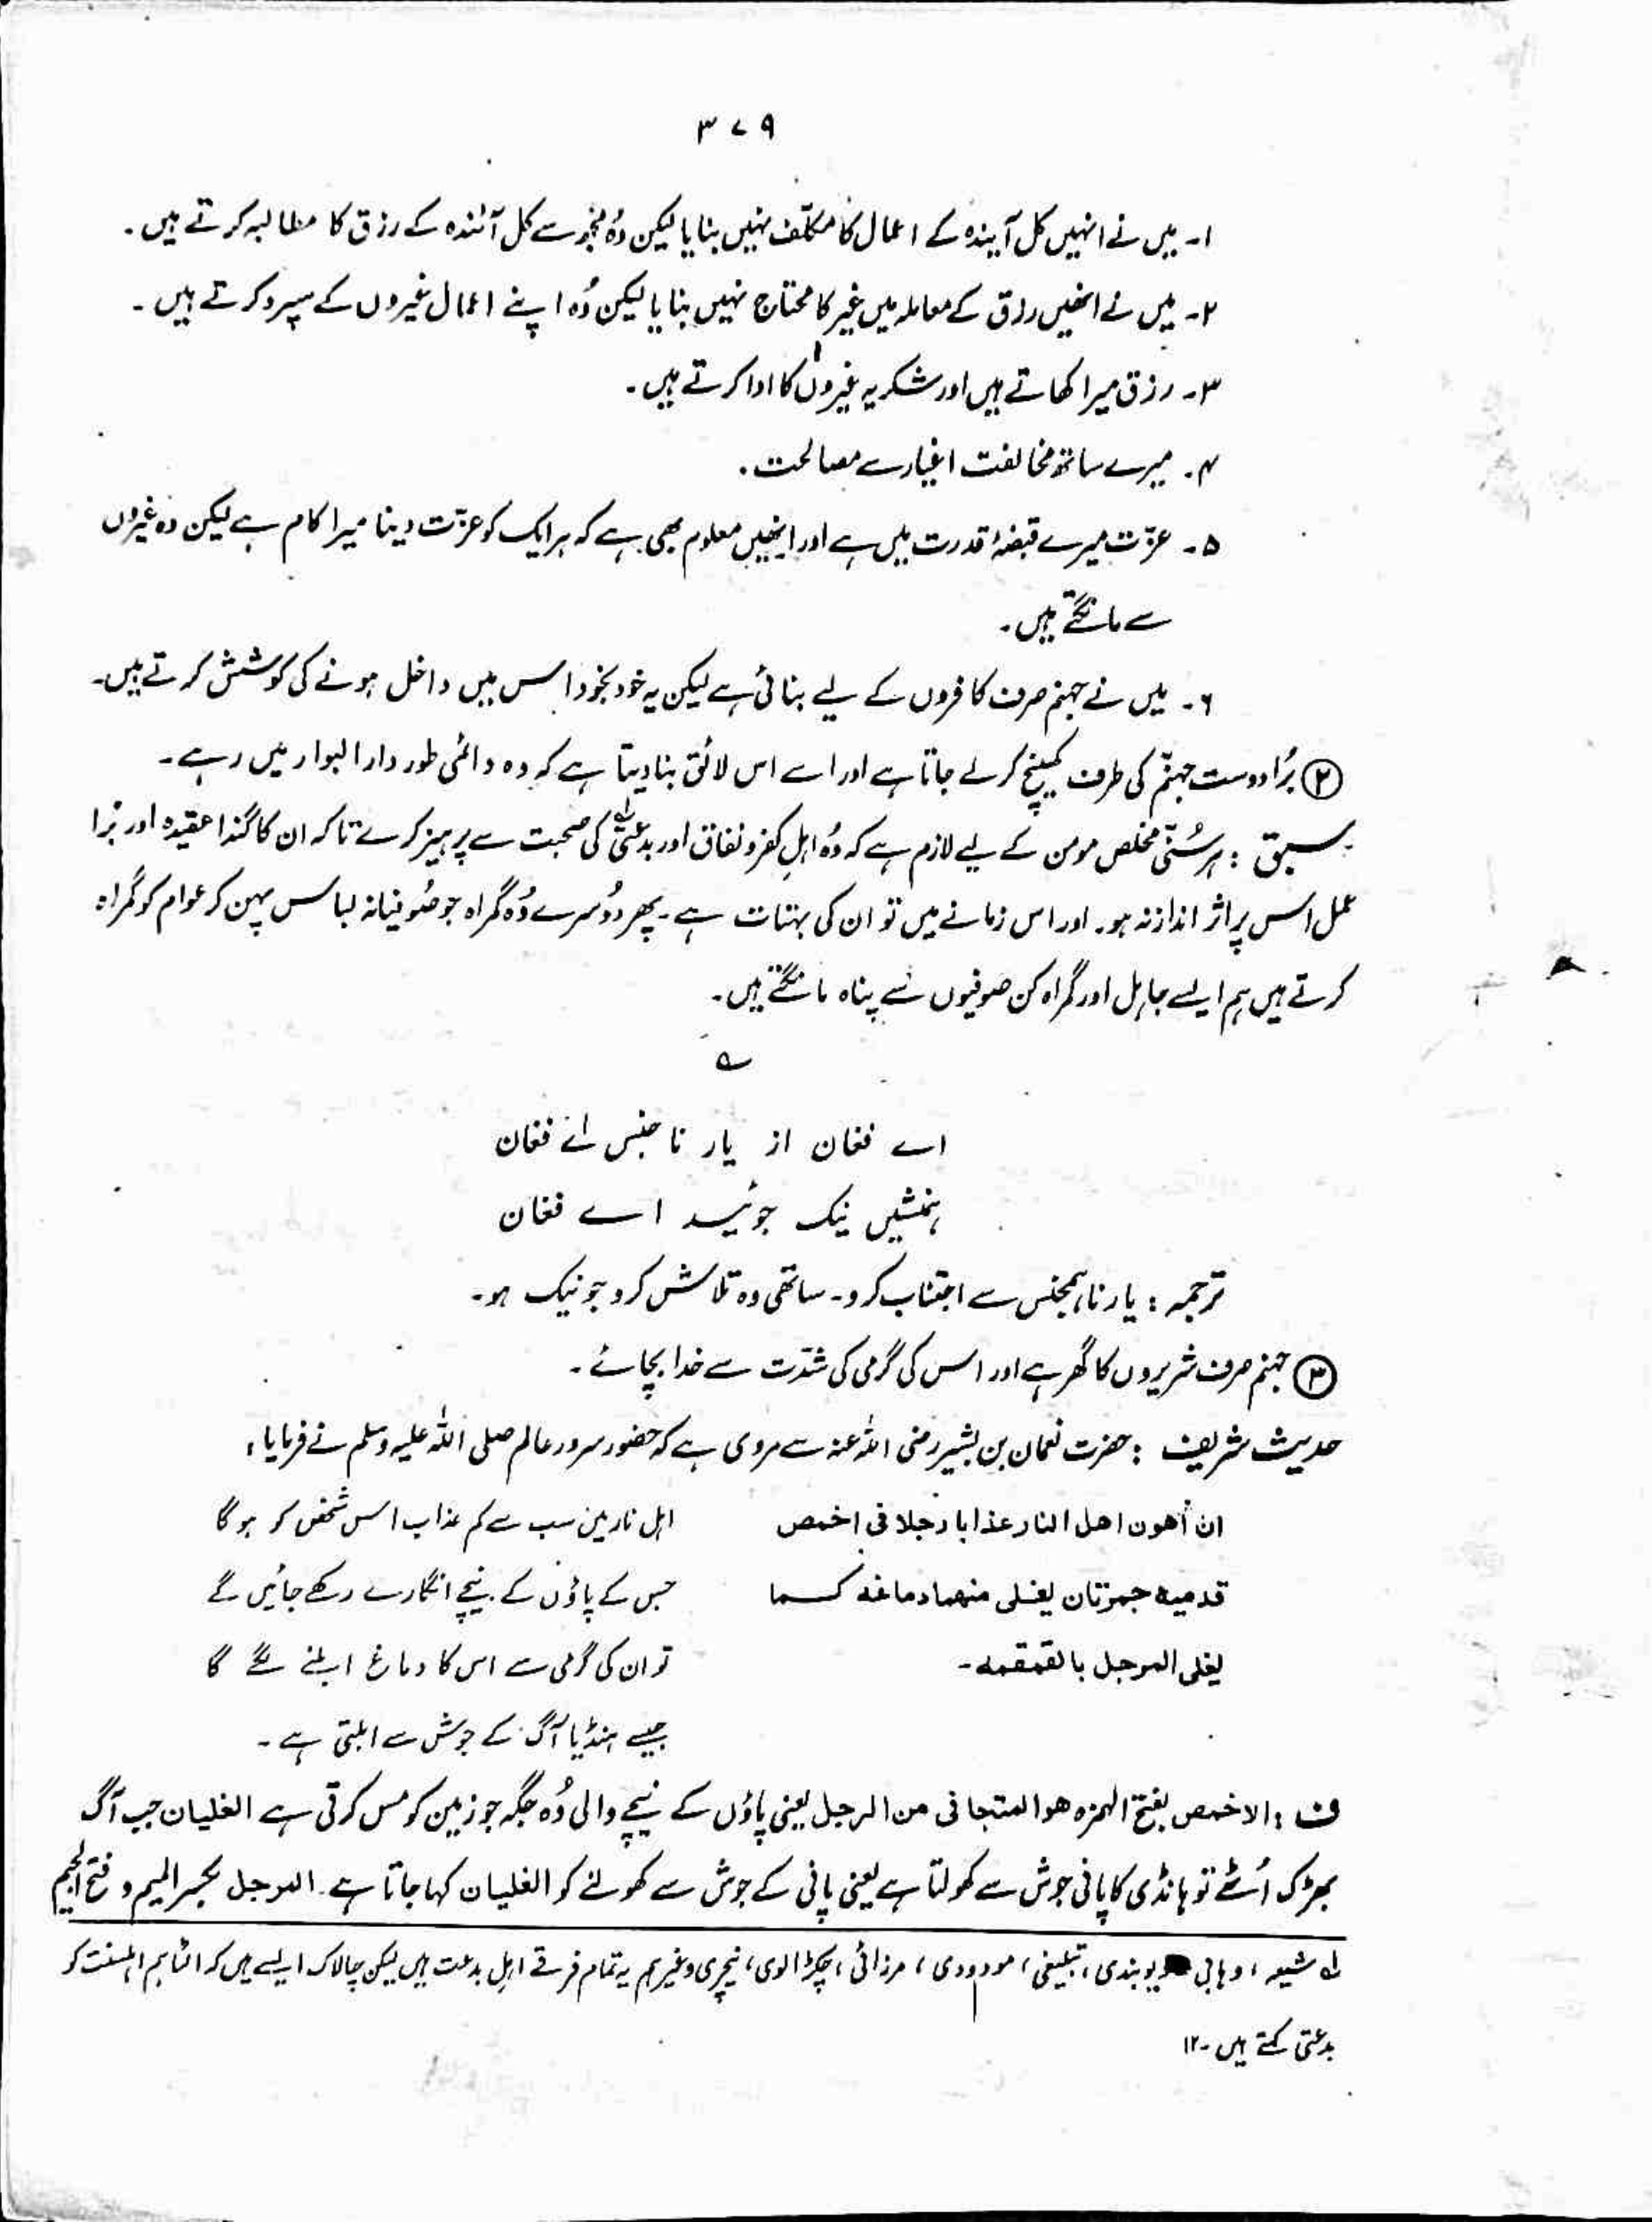 ۳۷۹
۱۔ میں نے انہیں کل آیندہ کے اعمال کا مکلّف نہیں بنایا لیکن وُہ مجھ سے کل آئندہ کے رزق کا مطالبہ کرتے ہیں۔
۲۔ میں نے انھیں رزق کے معاملہ میں غیر کا محتاج نہیں بنایا لیکن وُہ اپنے اعمال غیروں کے سپرد کرتے ہیں۔
۳۔ رزق میرا کھاتے ہیں اور شکریہ غیروں کا ادا کرتے ہیں۔
۴۔ میرے ساتھ مخالفت اغیار سے مصالحت۔
۵۔ عزّت میرے قبضۂ قدرت میں ہے اور انھیں معلوم بھی ہے کہ ہر ایک کو عزّت دینا میرا کام ہے لیکن وہ غیروں
سے مانگتے ہیں۔
۶۔ میں نے جہنم صرف کافروں کے لیے بنائی ہے لیکن یہ خود بخود اس میں داخل ہونے کی کوشش کرتے ہیں۔
② بُرا دوست جہنّم کی طرف کھینچ کر لے جاتا ہے اور اسے اس لائق بنا دیتا ہے کہ وہ دائمی طور دار البوار میں رہے۔
سبق : ہر سُنّی مخلص مومن کے لیے لازم ہے کہ وُہ اہلِ کفر و نفاق اور بدعتی لہ کی صحبت سے پرہیز کرے تاکہ ان کا گندا عقیدہ اور بُرا
عمل اس پر اثر انداز نہ ہو۔ اور اس زمانے میں تو ان کی بہتات ہے۔ پھر دُوسرے وُہ گمراہ جو صُوفیانہ لباس پہن کر عوام کو گمراہ
کرتے ہیں ہم ایسے جاہل اور گمراہ کن صوفیوں سے پناہ مانگتے ہیں۔
ے
اے فغان از یار ناجنس اے فغان
ہمنشیں نیک جوئید اے فغان
ترجمہ : یار ناہمجنس سے اجتناب کرو۔ ساتھی وہ تلاش کرو جو نیک ہو۔
③ جہنم صرف شریروں کا گھر ہے اور اس کی گرمی کی شدّت سے خدا بچائے۔
حدیث شریف : حضرت نعمان بن بشیر رضی اللہ عنہ سے مروی ہے کہ حضور سرور عالم صلی اللہ علیہ وسلم نے فرمایا :
ان أھون اھل النار عذابا رجلا فی اخمص
قدمیہ جمرتان یغلی منھما دماغہ کما
یغلی المرجل بالقمقمہ۔
اہل نار میں سب سے کم عذاب اس شخص کو ہوگا
جس کے پاؤں کے نیچے انگارے رکھے جائیں گے
تو ان کی گرمی سے اس کا دماغ ابلنے لگے گا
جیسے ہنڈیا آگ کے جوش سے ابلتی ہے۔
ف : الاخمص بفتح الہمزہ ھو المتجافی من الرجل یعنی پاؤں کے نیچے والی وُہ جگہ جو زمین کو مس کرتی ہے الغلیان جب آگ
بھڑک اُٹھے تو ہانڈی کا پانی جوش سے کھولتا ہے یعنی پانی کے جوش سے کھولنے کو الغلیان کہا جاتا ہے۔ المرجل بکسر المیم و فتح الجیم
لہ شیعہ ، وہابی دیوبندی ، تبلیغی ، مودودی ، مرزائی ، چکڑالوی ، نیچری وغیرہم یہ تمام فرقے اہلِ بدعت ہیں لیکن چالاک ایسے ہیں کہ الٹا ہم اہلسنت کو
بدعتی کہتے ہیں۔ ۱۲